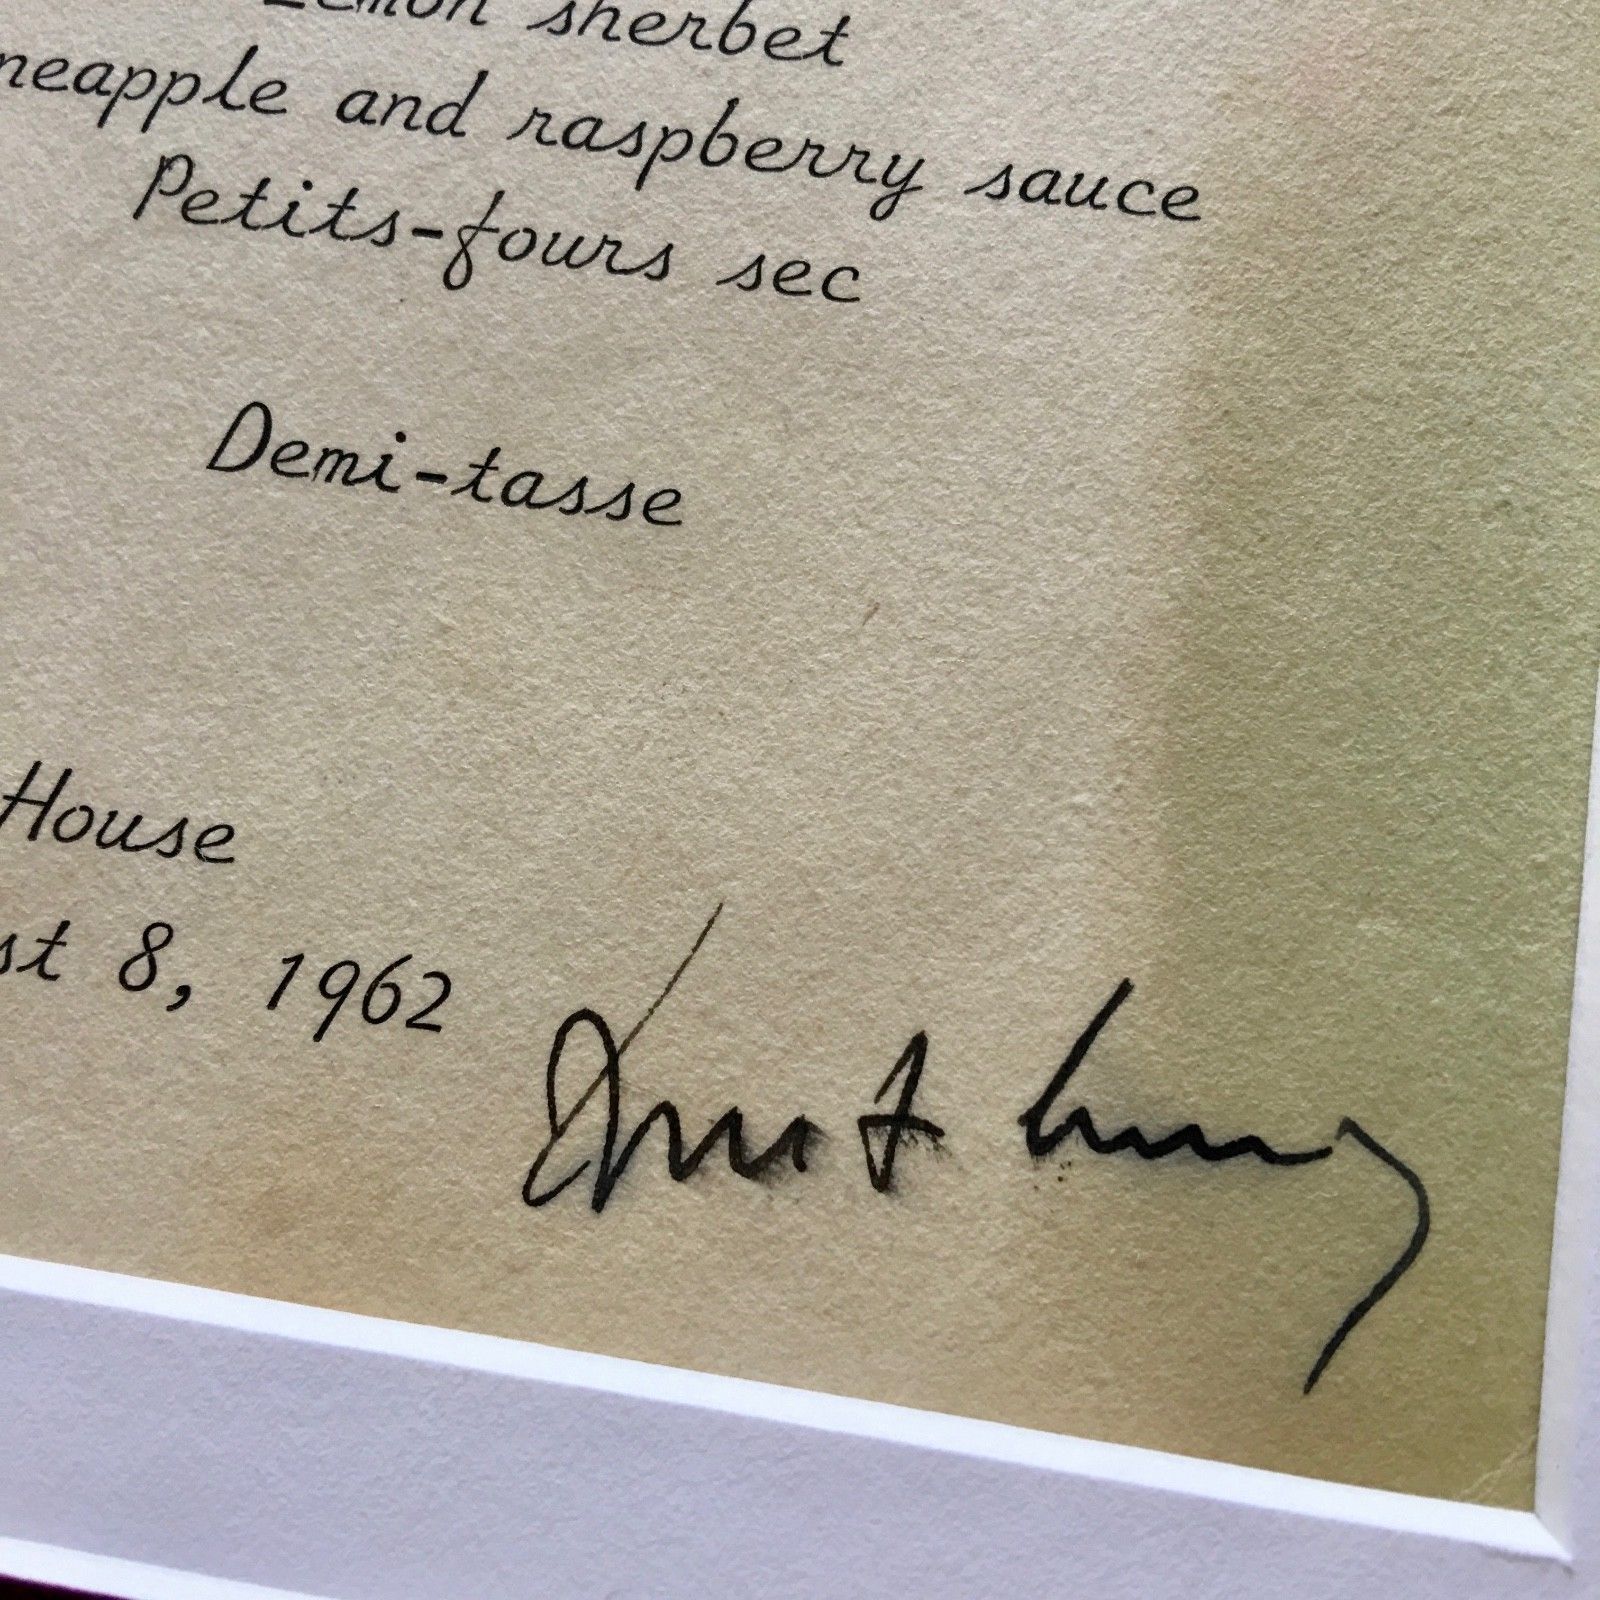 Lemon sherbet
neapple and raspberry sauce
Petits-fours sec
Demi-tasse
House
st 8, 1962